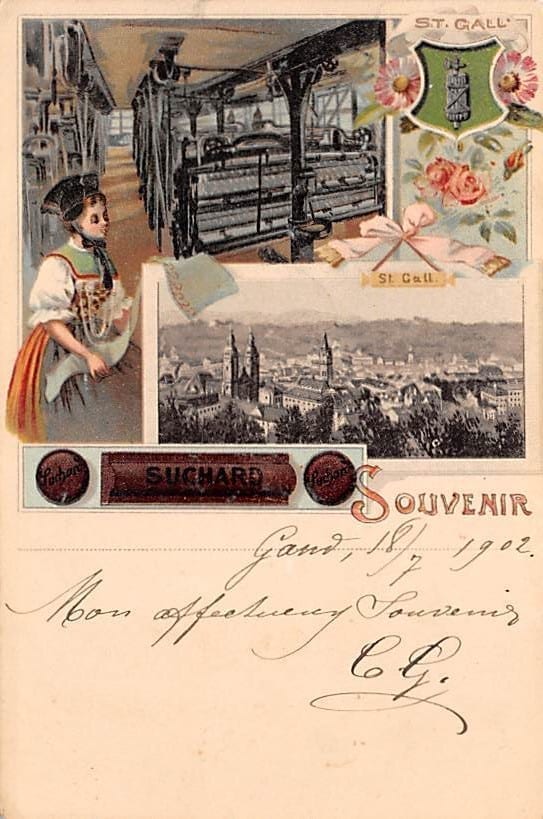 ST. GALL
St. Gall.
Suchard SUCHARD Suchard
SOUVENIR
Gand, 18/7 1902.
Mon affectueux Souvenir
C G.